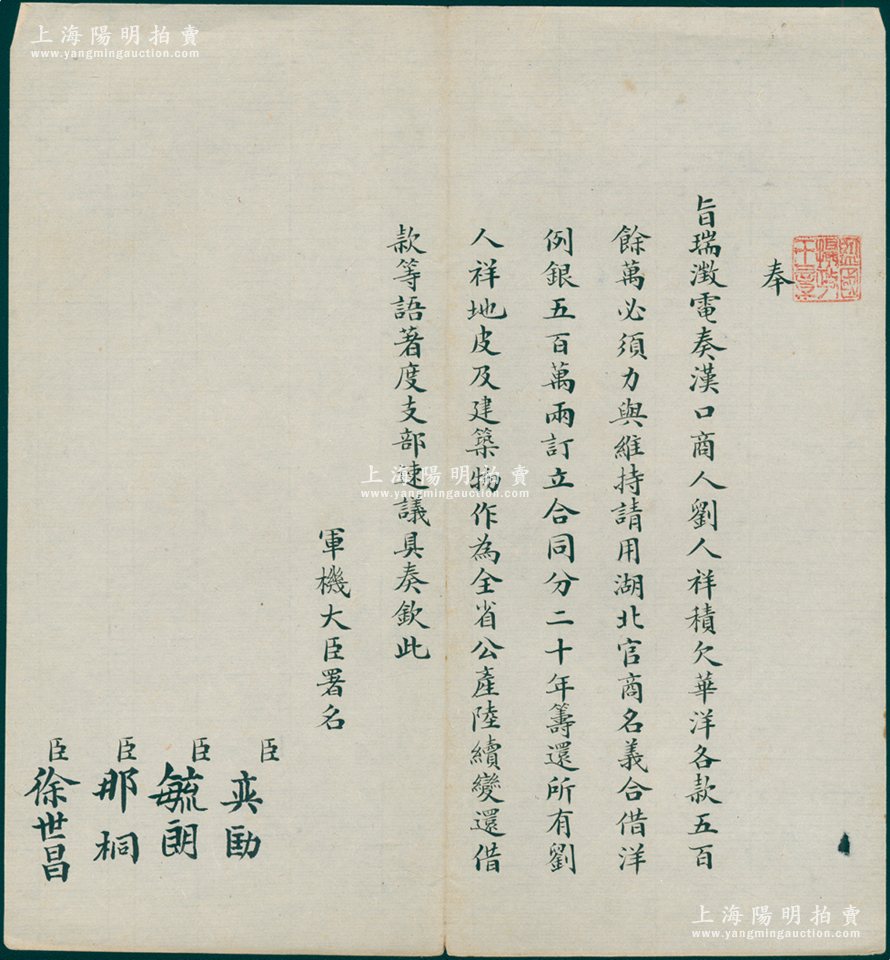 上海陽明拍賣
www.yangmingauction.com
監國
攝政
王章
奉
旨瑞澂電奏漢口商人劉人祥積欠華洋各款五百
餘萬必須力與維持請用湖北官商名義合借洋
例銀五百萬兩訂立合同分二十年籌還所有劉
人祥地皮及建築物作為全省公產陸續變還借
款等語著度支部速議具奏欽此
軍機大臣署名
臣奕劻
臣毓朗
臣那桐
臣徐世昌
上海陽明拍賣
www.yangmingauction.com
上海陽明拍賣
www.yangmingauction.com